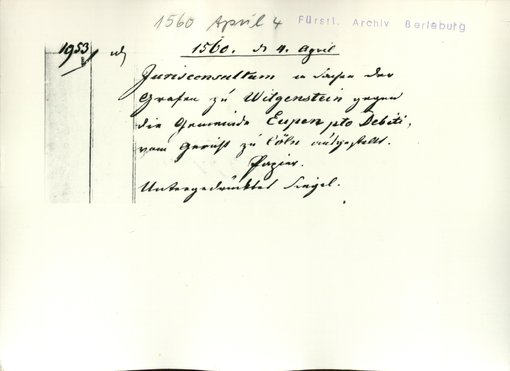 1560 April 4 Fürstl. Archiv Berleburg
1953
1560. d 4. April
Jurisconsultum in Sachen der
Grafen zu Witgenstein gegen
die Gemeinde Eupen pto Debiti,
vom Gericht zu Cöln ausgestellt.
Papier.
Untergedrücktes Siegel.